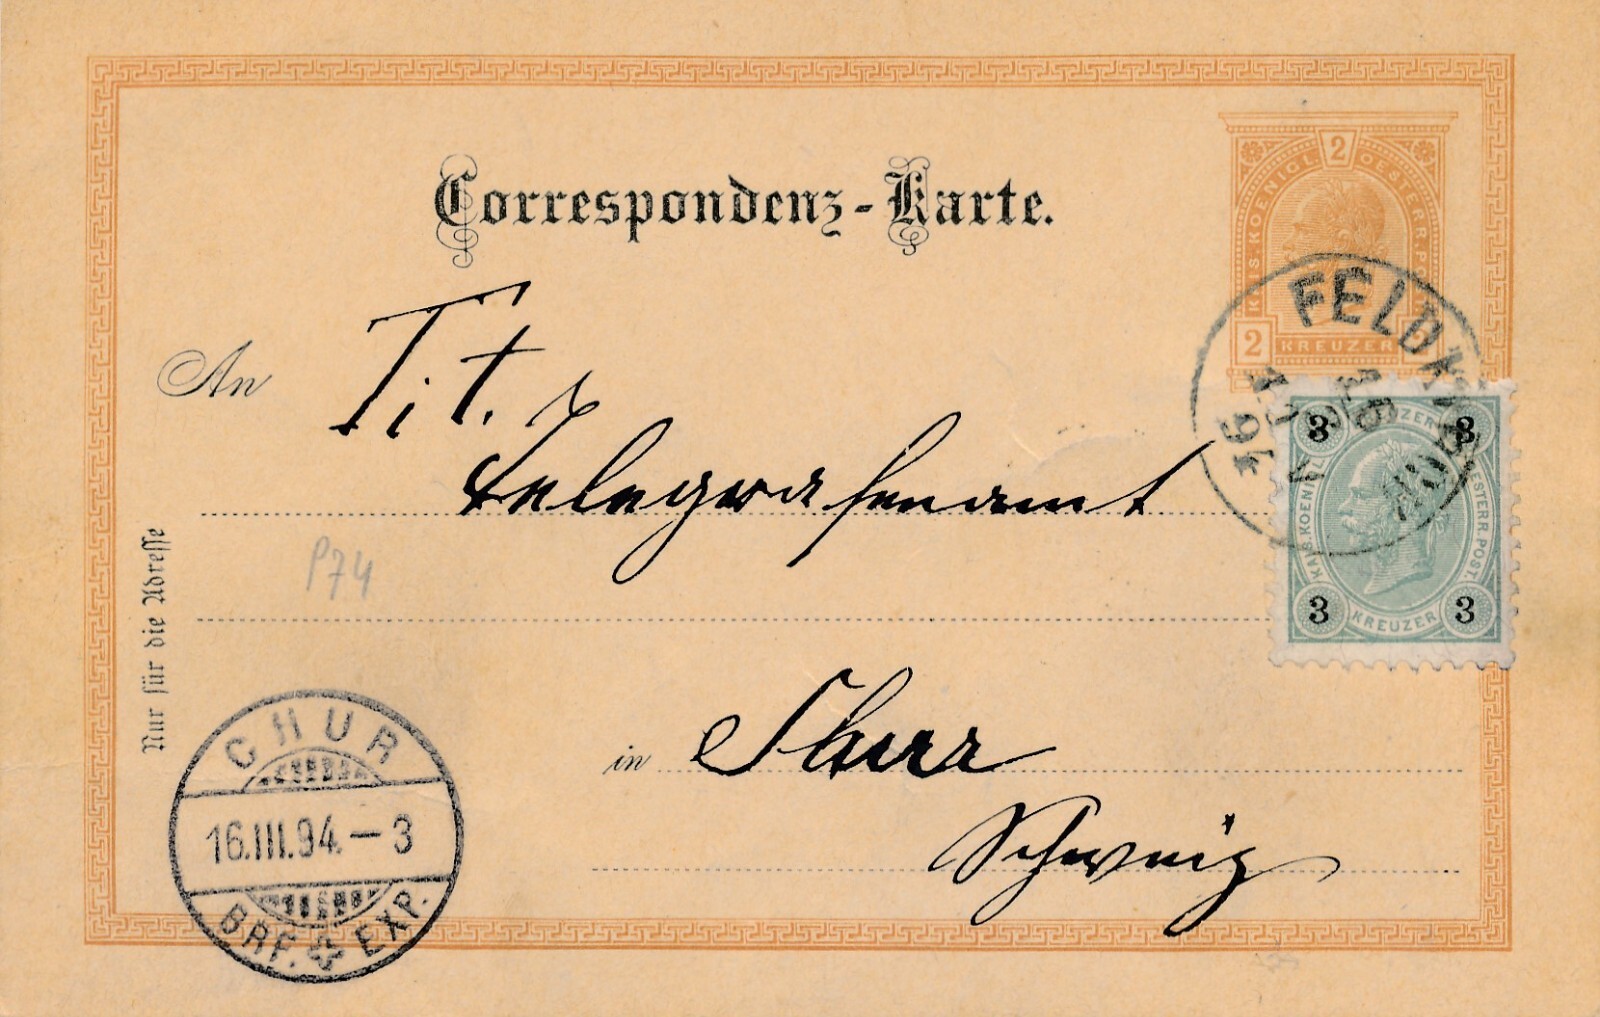 Correspondenz-Karte.
KAIS. KOENIGL. 2 OESTERR. POST
2 KREUZER 2
FELDKIRCH
16
An
Tit.
Telegrafenamt
3 KREUZER 3
KAIS. KOENIGL. OESTERR. POST.
3 KREUZER 3
P74
Nur für die Adresse
in Churr
Schweiz
CHUR
16.III.94.–3
BRF. EXP.